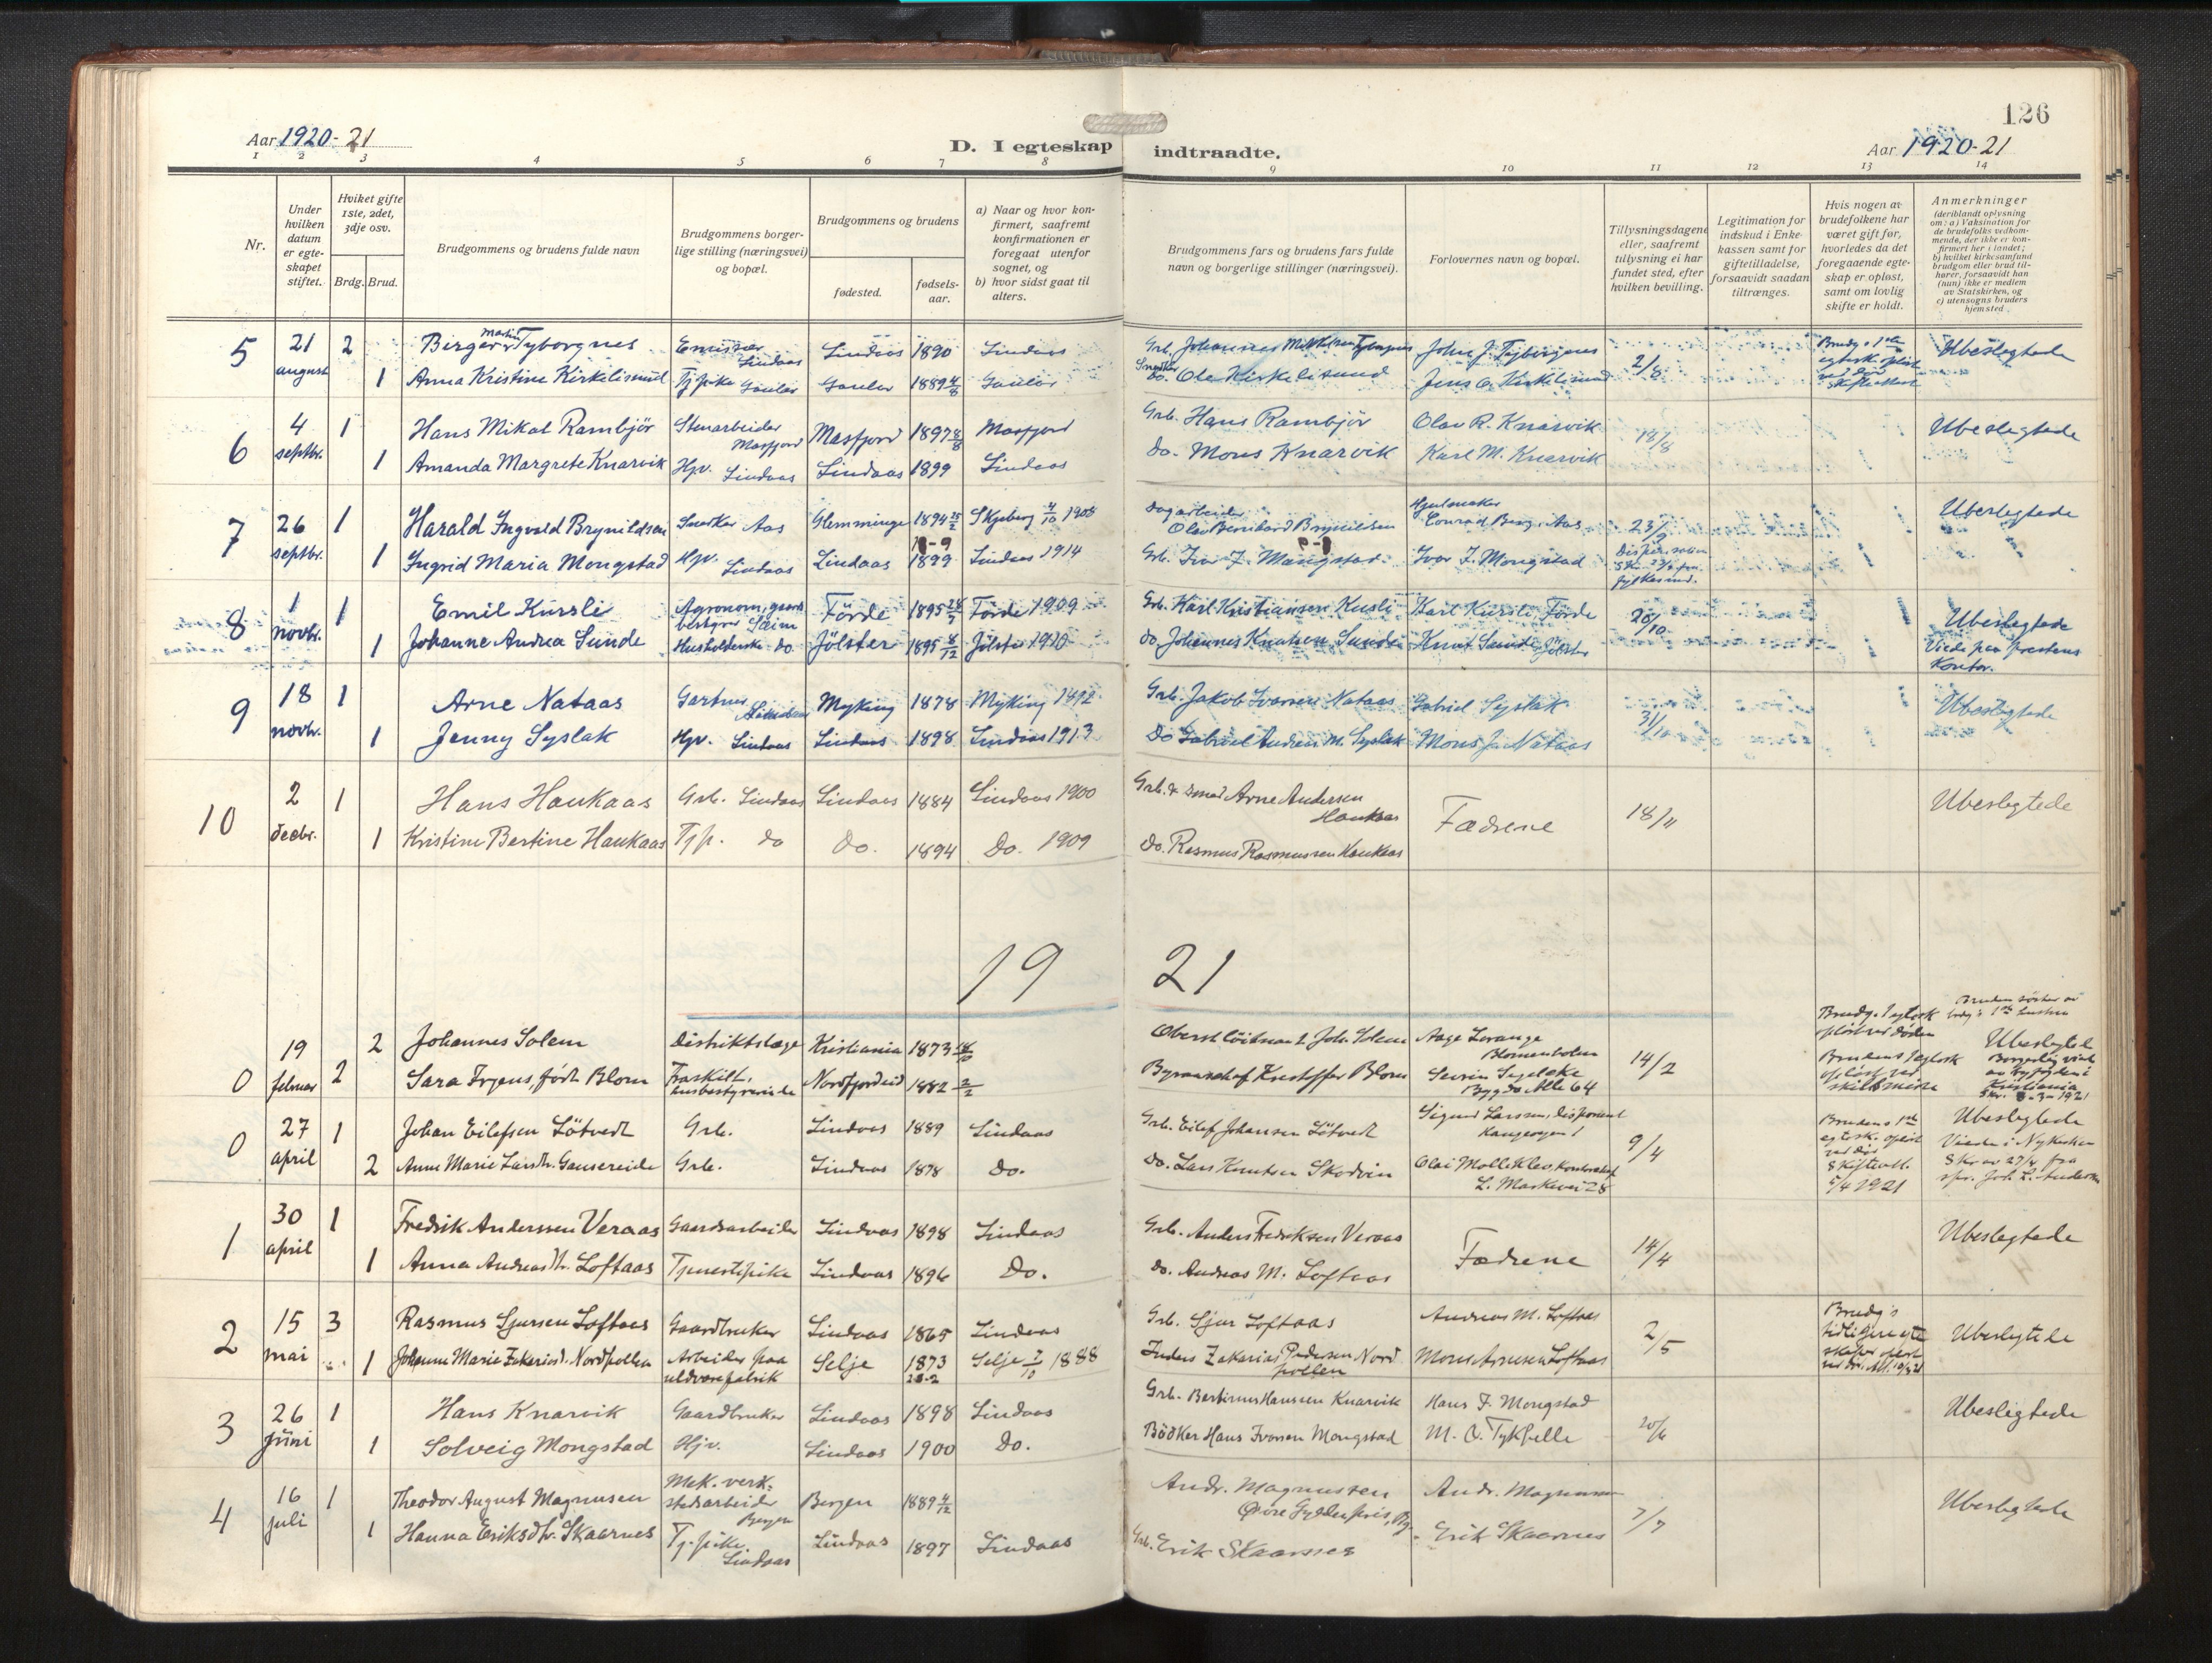 126
Aar 1920-21
D. I egteskap indtraadte.
Aar 1920-21
1 2 3 4 5 6 7 8 9 10 11 12 13 14
Nr.
Under hvilken datum er egteskapet stiftet.
Hviket gifte 1ste, 2det, 3dje osv.
Brdg. Brud.
Brudgommens og brudens fulde navn
Brudgommens borgerlige stilling (næringsvei) og bopæl.
Brudgommens og brudens
fødested.
fødselsaar.
a) Naar og hvor konfirmert, saafremt konfirmationen er foregaat utenfor sognet, og
b) hvor sidst gaat til alters.
Brudgommens fars og brudens fars fulde navn og borgerlige stillinger (næringsvei).
Forlovernes navn og bopæl.
Tillysningsdagene eller, saafremt tillysning ei har fundet sted, efter hvilken bevilling.
Legitimation for indskud i Enkekassen samt for giftetilladelse, forsaavidt saadan tiltrænges.
Hvis nogen av brudefolkene har været gift før, hvorledes da det foregaaende egteskap er opløst, samt om lovlig skifte er holdt.
Anmerkninger
(deriblandt oplysning om: a) Vaksination for de brudefolks vedkommende, der ikke er konfirmert her i landet; b) hvilket kirkesamfund brudgom eller brud tilhører, forsaavidt han (hun) ikke er medlem av Statskirken, og c) utensogns bruders hjemsted.
5 21 august 2 Berger Martin Tyborgnes Emissær Lindaas Lindaas 1890 Lindaas Grb. Johannes Mikkelsen John J. 2/8 Brudg's 1ste egtesk. opløst ved død Ubeslegtede
1 Anna Kristine Kirkelisund Tj.pike Gaular Gaular 1889 4/8 Gaular do. Ole Kirkelisund Jens O. Kirkelisund
6 4 septbr. 1 Hans Mikal Rambjör Stenarbeider Masfjord Masfjord 1897 8/8 Masfjord Grb. Hans Rambjör Olav R. Knarvik 18/8 Ubeslegtede
1 Amanda Margrete Knarvik Hjv. Lindaas Lindaas 1899 Lindaas do. Mons Knarvik Karl M. Knarvik
7 26 septbr. 1 Harald Ingvald Brynildsen Snedker Aas Glemminge 1894 25/2 Skjeberg 4/10 1908 Dagarbeider Olav Bernhard Brynildsen Hjulmaker Conrad Berg, Aas 23/9 Ubeslegtede
1 Ingrid Maria Mongstad Hjv. Lindaas Lindaas 1899 Lindaas 1914 Grb. Ivar J. Mongstad Ivar J. Mongstad Dispensation
8 1 novbr. 1 Emil Kussli Agronom, gaardsbestyrer Sæim Förde 1895 Förde 1909 Grb. Karl Kristiansen Kusli Karl Kursli Förde 20/10 Ubeslegtede
1 Johanne Andrea Sunde Husholderske do Jölster 1895 8/12 Jölster 1910 do. Johannes Knutsen Sunde Knut Sunde Jölster Viede paa prestens kontor.
9 18 novbr. 1 Arne Nataas Gartner Lindaas Myking 1878 Myking 1892 Grb. Jakob Ivarsen Nataas Gabriel Syslak 31/10 Ubeslegtede
1 Jenny Syslak Hjv. Lindaas Lindaas 1898 Lindaas 1913 Do Gabriel Andreas M. Syslak Mons J. Nataas
10 2 decbr. 1 Hans Haukaas Grb. Lindaas Lindaas 1884 Lindaas 1900 Grb. & smed Arne Andersen Haukaas Fædrene 18/11 Ubeslegtede
1 Kristine Bertine Haukaas Tjp. do Do. 1894 Do. 1909 Do. Rasmus Rasmussen Haukaas
19 21
0 19 februar 2 Johannes Solem Distriktslæge Kristiania 1873 Oberstlöitnant Joh. Solem Aage Lorange Blommenholm 14/2 Brudg. 1 egtesk. oplöst ved döden Bruden söster av brdg's 1ste hustru Ubeslegtede
2 Sara Irgens, födt Blom Fraskilt, husbestyrerinde Nordfjordeid 1882 2/2 Byraachef Kristoffer Blom Bygdö Alle 64 Brudens 1 egtesk. oplöst ved skilsmisse Borgerlig viet av byfogden i Kristiania 8-3-1921
0 27 april 1 Johan Eilefsen Lötvedt Grb. Lindaas 1889 Lindaas Grb. Eilef Johansen Lötvedt Sigurd Larssen, disponent 9/4 Brudens 1ste egtesk. oplöst ved död Skifteatt. 5/4 1921 Ubeslegtede
2 Anna Marie Larsdtr. Gausereide Grb. Lindaas 1878 Do. Do. Lars Knutsen Skodvin Olai Molleklev, Kontorchef L. Markevei 28 Viede i Nykirken Skr av 27/4 fra spr. Joh. L. Andersen
1 30 april 1 Fredrik Anderssen Veraas Gaardsarbeider Lindaas 1898 Lindaas Grb. Anders Fredriksen Veraas Fædrene 14/4 Ubeslegtede
1 Anna Andreasdtr. Loftaas Tjenestepike Lindaas 1896 Do. Do. Andreas M. Loftaas
2 15 mai 3 Rasmus Sjursen Loftaas Gaardbruker Lindaas 1865 Lindaas Grb. Sjur Loftaas Andreas M. Loftaas 2/5 Brudg's tidligere egteskaper oplöst ved död. Ubeslegtede
1 Johanne Marie Zakariasd. Nordpollen Arbeider paa uldvarefabrik Selje 1873 Selje 7/10 1888 Inders Zakarias Pedersen Nordpollen Mons Arnesen Loftaas
3 26 juni 1 Hans Knarvik Gaardbruker Lindaas 1898 Lindaas Grb. Bertinus Hanssen Knarvik Hans J. Mongstad 20/6 Ubeslegtede
1 Solveig Mongstad Hjv. Lindaas 1900 Do. Bödker Hans Ivarsen Mongstad M. O. Tykhelle
4 16 juli 1 Theodor August Magnusen Mek. verkstedsarbeider Bergen Bergen 1889 4/12 Andr. Magnussen Övre Fyllingsveien Andr. Magnussen 7/7 Ubeslegtede
1 Hanna Eriksdtr. Skaarnes Tj.pike Lindaas Lindaas 1897 Lindaas Grb. Erik Skaarnes Erik Skaarnes